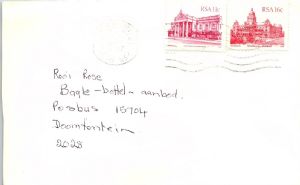 RSA 11c RSA 16c
Roni Rose
Bagle - bottel - aanbod.
Posbus 15704
Doornfontein.
2028